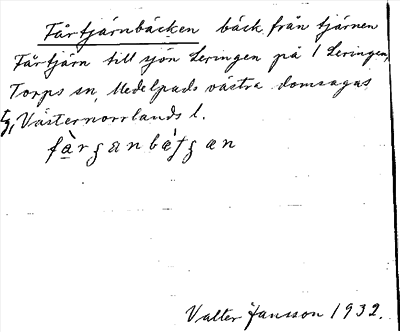 Fårtjärnbäcken bäck från tjärnen
Fårtjärn till sjön Leringen på 1 Leringen,
Torps sn, Medelpads västra domsagas
tg, Västernorrlands l.
Valter Jansson 1932.